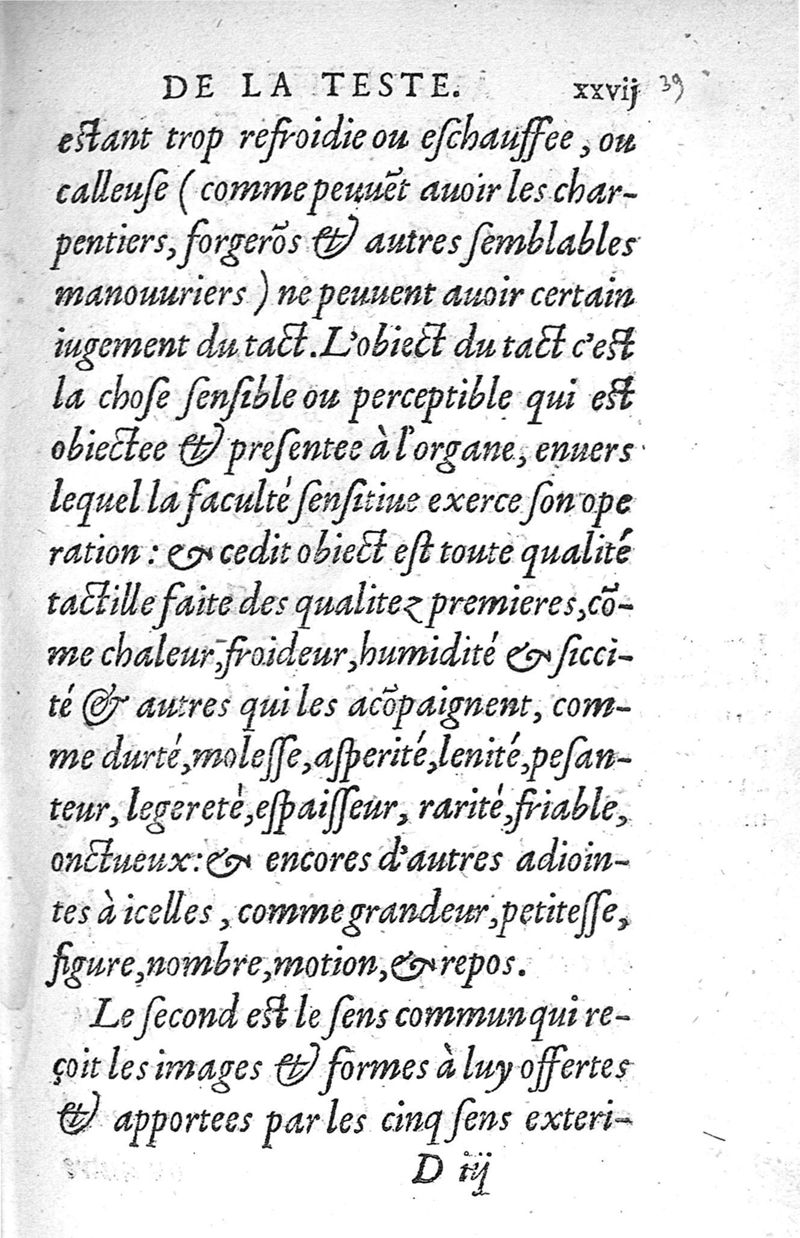 DE LA TESTE. xxvij 39
eſtant trop refroidie ou eſchauffee, ou
calleuſe (comme peuuẽt auoir les char-
pentiers, forgerõs & autres ſemblables
manouuriers) ne peuuent auoir certain
iugement du tact. L'obiect du tact c'eſt
la choſe ſenſible ou perceptible qui eſt
obiectee & preſentee à l'organe, enuers
lequel la faculté ſenſitiue exerce ſon ope
ration : & cedit obiect eſt toute qualité
tactille faite des qualitez premieres, cõ-
me chaleur, froideur, humidité & ſicci-
té & autres qui les acõpaignent, com-
me durté, moleſſe, aſperité, lenité, peſan-
teur, legereté, eſpaiſſeur, rarité, friable,
onctueux: & encores d'autres adioin-
tes à icelles, comme grandeur, petiteſſe,
figure, nombre, motion, & repos.
Le ſecond eſt le ſens commun qui re-
çoit les images & formes à luy offertes
& apportees par les cinq ſens exteri-
D iij